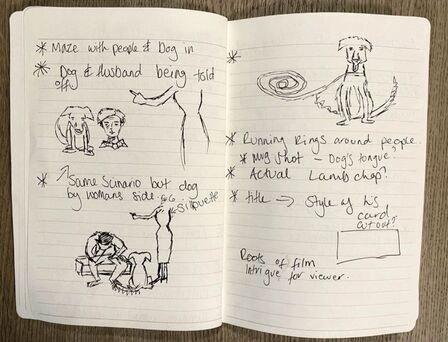 * Maze with people & Dog in
* Dog & Husband being told
off
* Same Scinario but dog
by womans side.
silhouette
*
* Running Rings around people.
* Mug shot - Dog's tongue?
* Actual Lamb chop?
* title → Style of
card
cut out?
Roots of film
Intrigue for viewer.